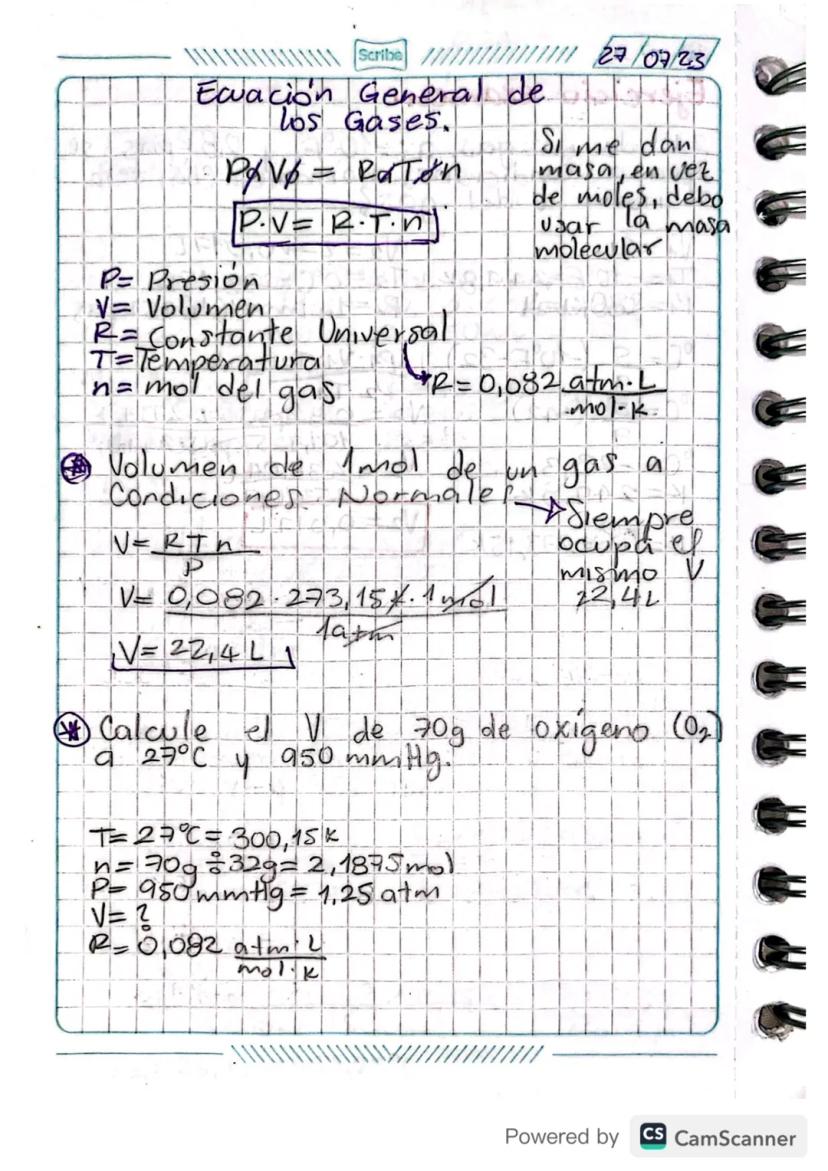 Scribe
27/07/23
Ecuación General de
los Gases.
P₀V₀ = R₀T₀n
P.V= R.T.n
Si me dan
masa, en vez
de moles, debo
usar la masa
molecular
P= Presión
V= Volumen
R= Constante Universal
T= Temperatura
n= mol del gas
R= 0,082 atm.L
mol.K
Volumen de 1mol de un gas a
Condiciones Normales
Siempre
ocupa el
mismo V
22,4L
V= RTn
P
V= 0,082 . 273,15K . 1mol
1atm
V= 22,4 L
Calcule el V de 70g de oxígeno (O₂)
a 27°C y 950 mmHg.
T= 27°C = 300,15 K
n= 70g ÷ 32g = 2,1875mol
P= 950mmHg = 1,25 atm
V= ?
R= 0,082 atm.L
mol.K
Powered by CS CamScanner